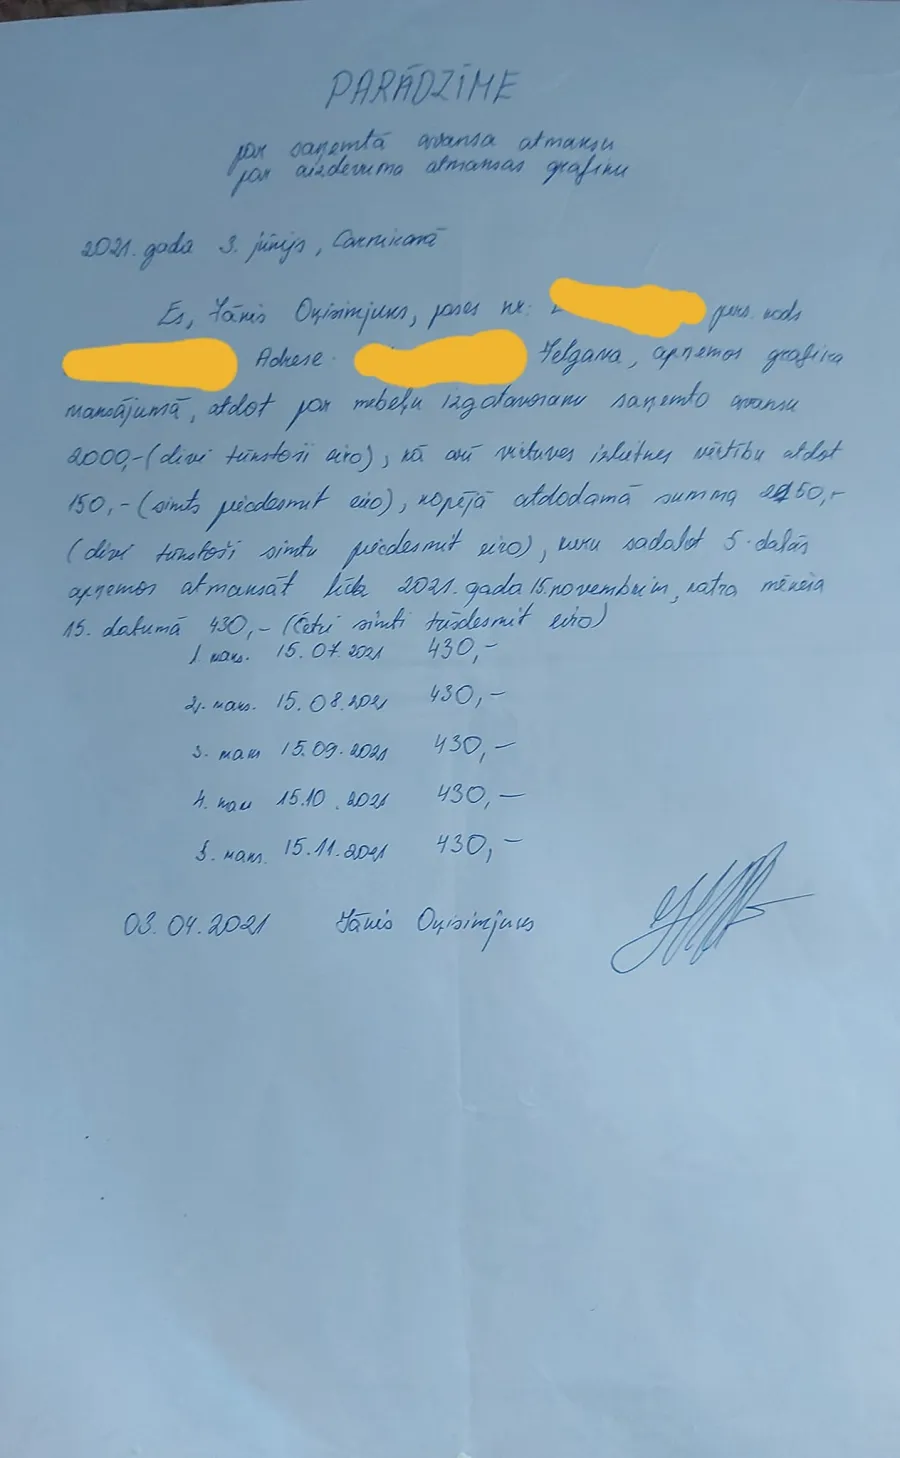 PARĀDZĪME
par saņemtā avansa atmaksu
par aizdevuma atmaksas grafiku
2021. gada 3. jūnijs, Carnikavā
Es, Jānis Oņisimjuks, pases nr: pers. kods
Adrese. Jelgava, apņemos grafika
maksājumā, atdot par mēbeļu izgatavošanu saņemto avansu
2000,- (divi tūkstoši eiro), kā arī virtuves izlietnes vērtību atdot
150,- (simts piecdesmit eiro), kopējā atdodamā summa 2150,-
(divi tūkstoši simtu piecdesmit eiro), kuru sadalot 5. daļās
apņemos atmaksāt līdz 2021. gada 15. novembrim, katra mēneša
15. datumā 430,- (četri simti trīsdesmit eiro)
1. maks. 15.07.2021 430,-
2. maks. 15.08.2021 430,-
3. mak 15.09.2021 430,-
4. mak 15.10.2021 430,-
5. maks. 15.11.2021 430,-
03.04.2021 Jānis Oņisimjuks